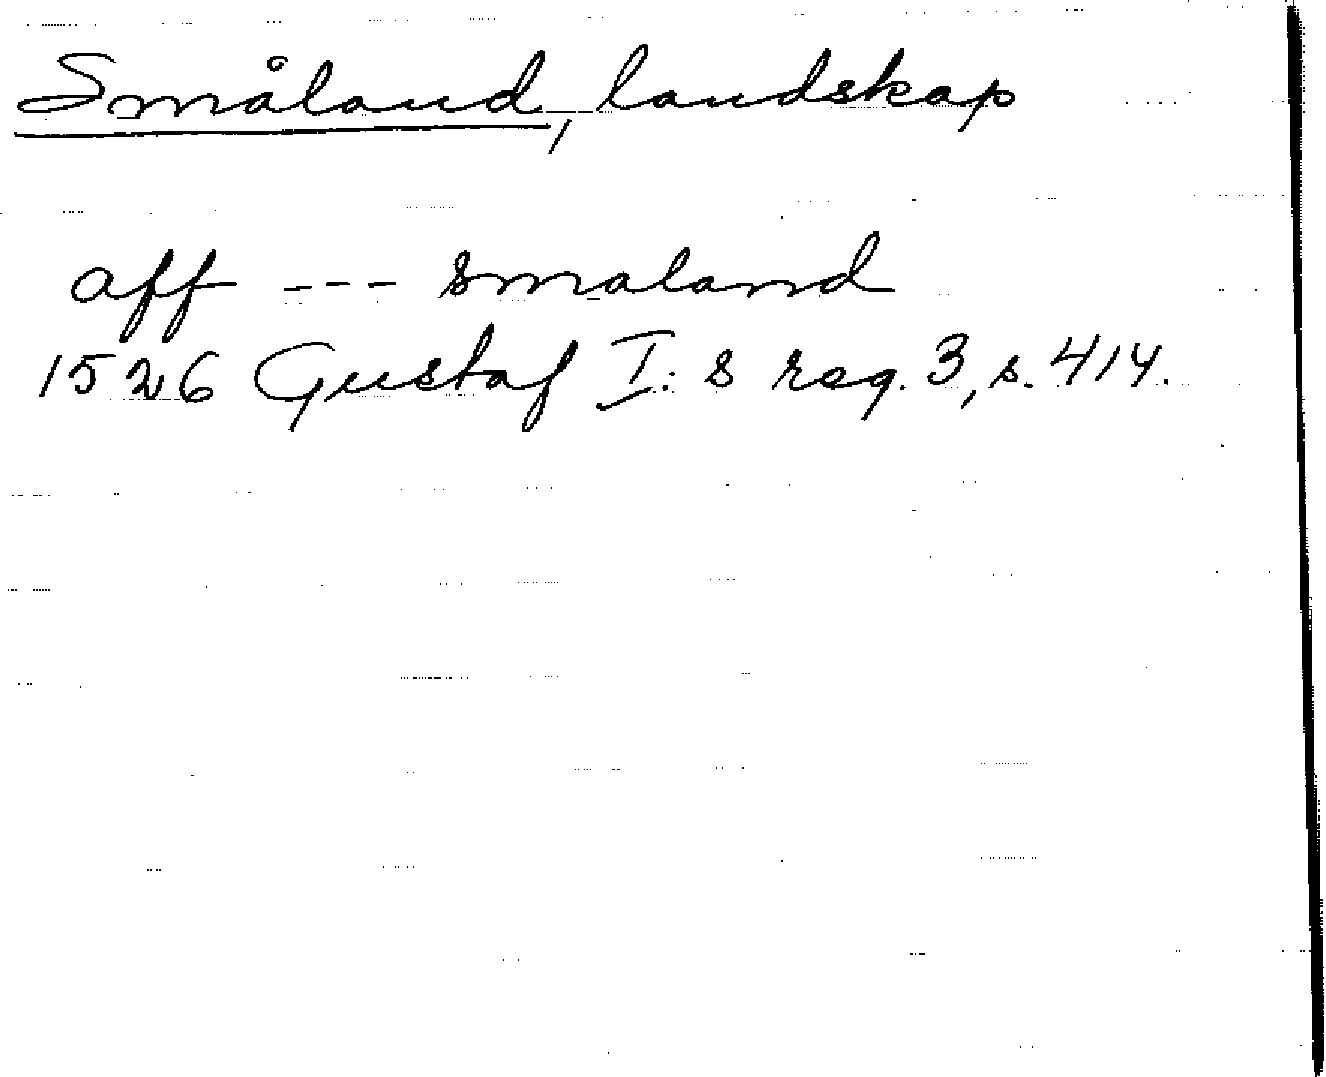 Småland, landskap
aff --- smaland
1526 Gustaf I:s reg. 3, s. 414.